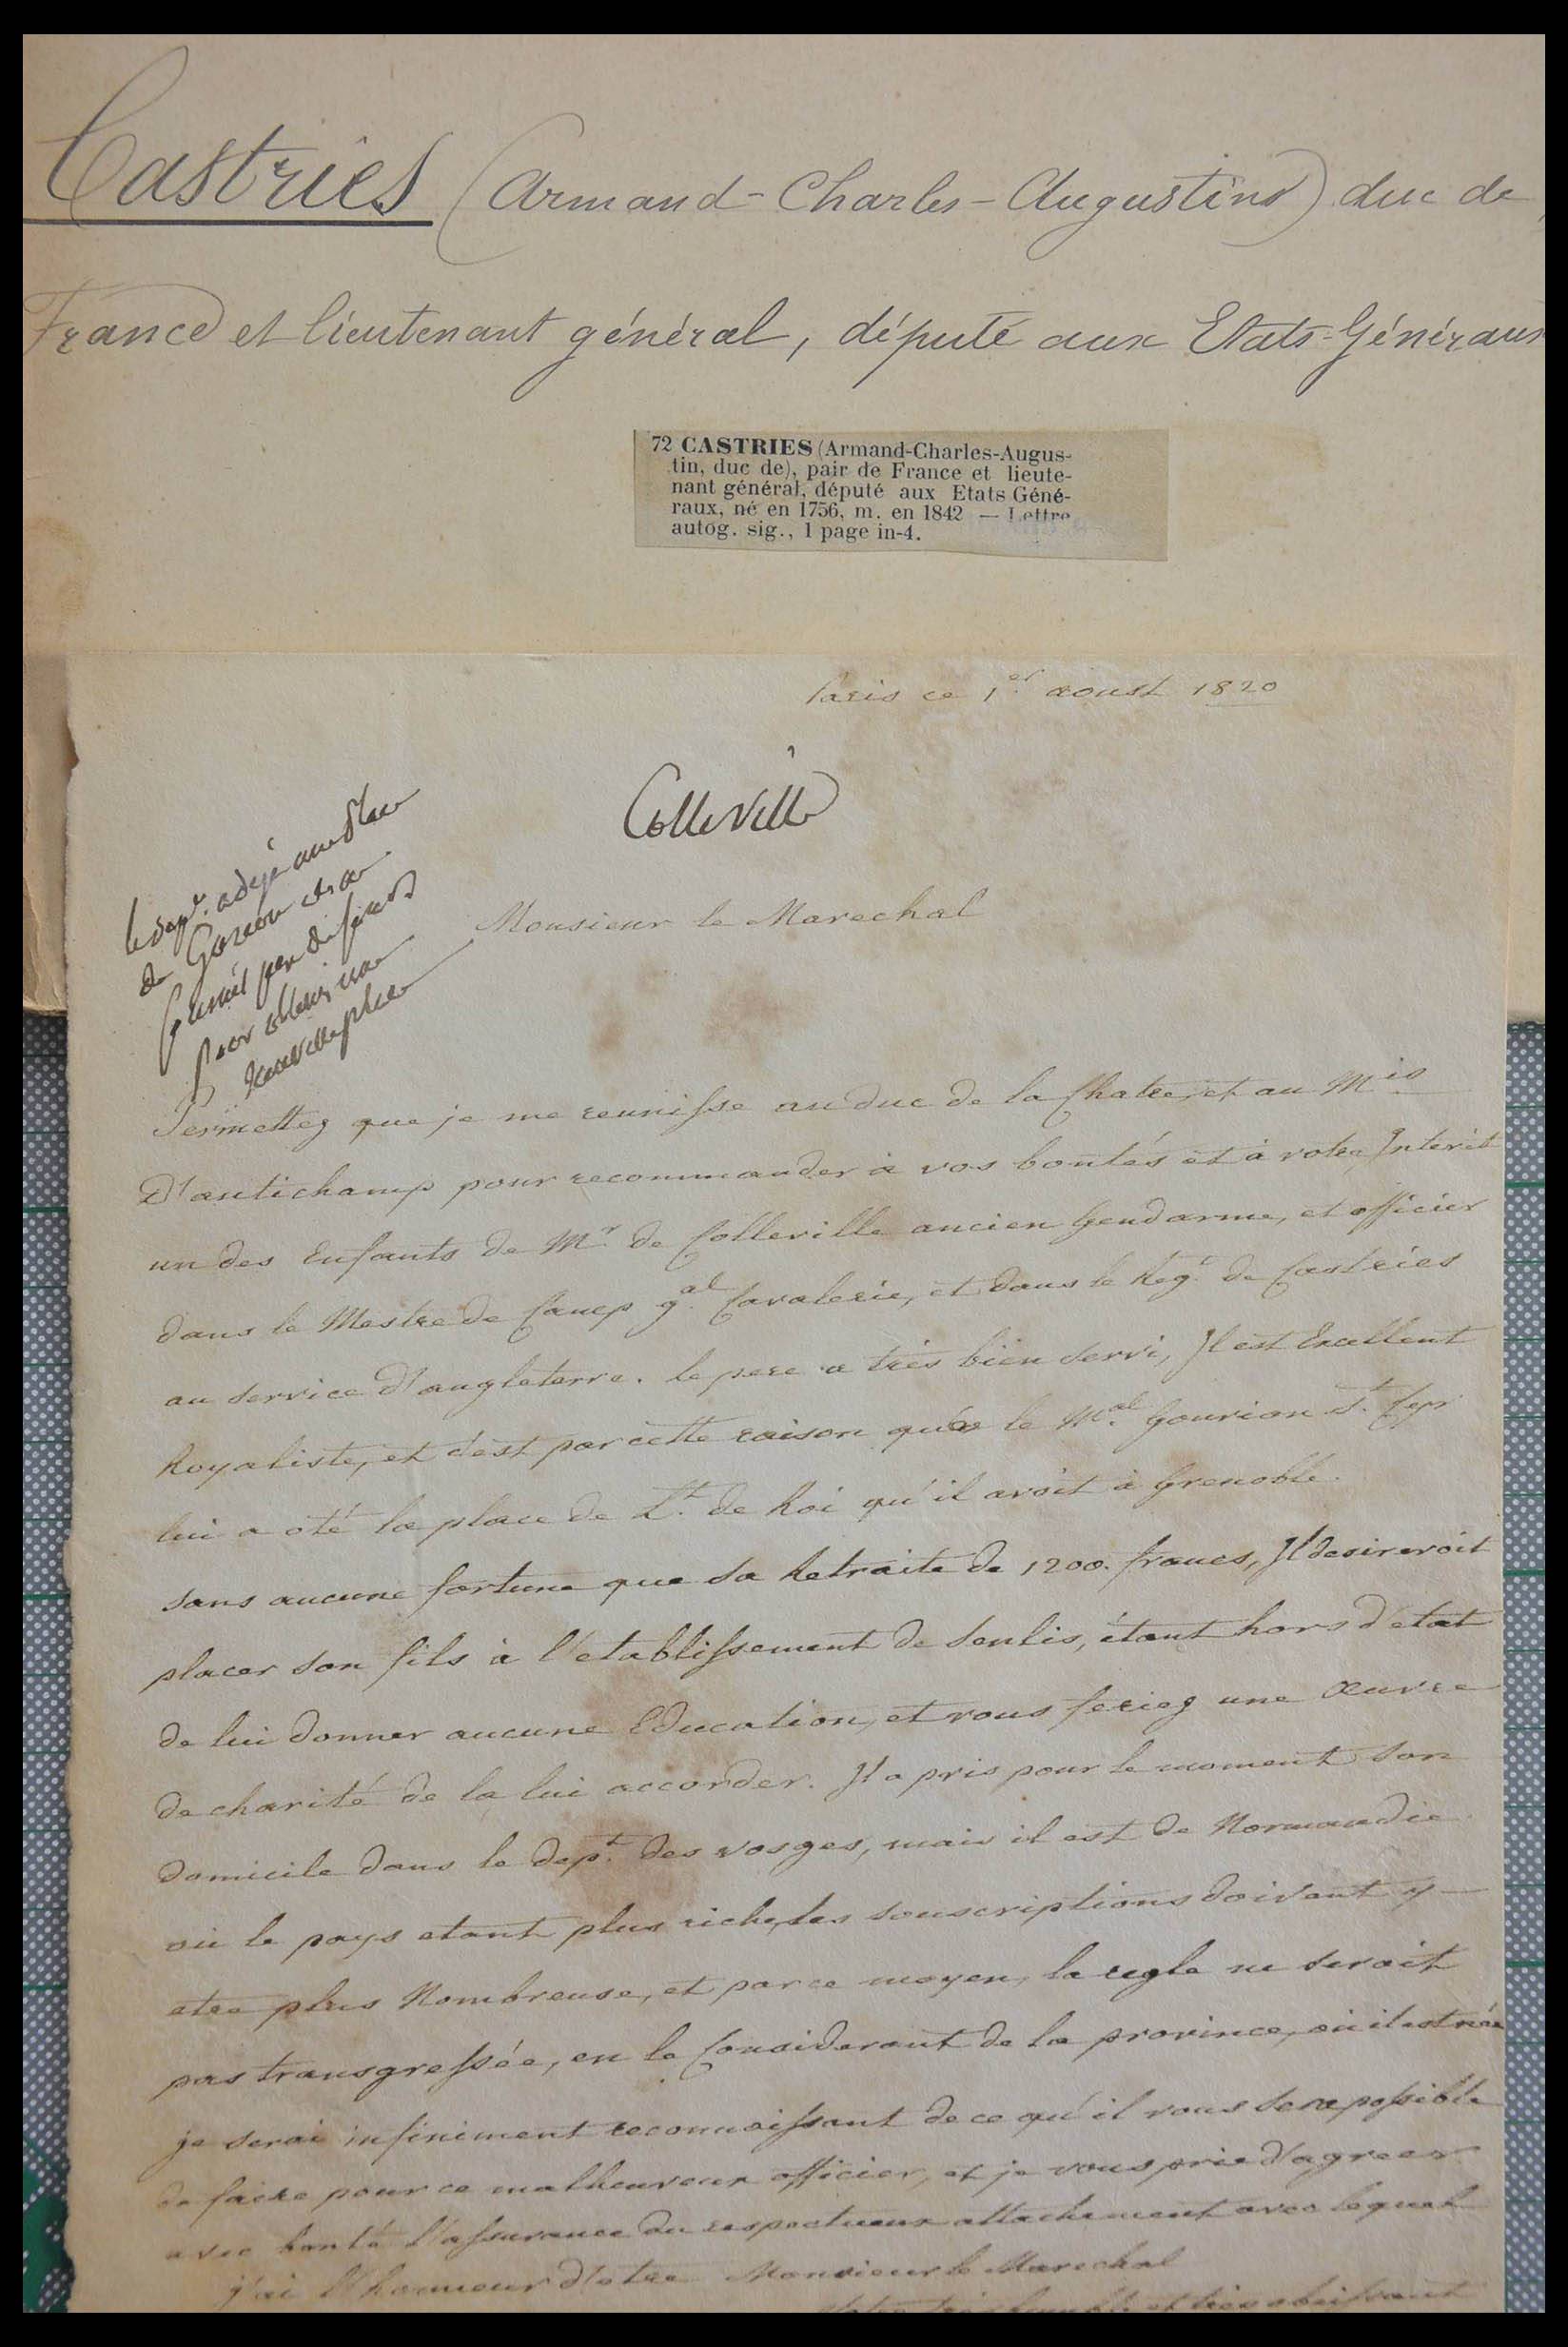 Castries (Armand-Charles-Augustin) duc de,
France et lieutenant général, député aux Etats-Généraux
72 CASTRIES (Armand-Charles-Augus-
tin, duc de), pair de France et lieute-
nant général, député aux Etats Géné-
raux, né en 1756, m. en 1842 — Lettre
autog. sig., 1 page in-4.
Paris ce 1er aoust 1820
Colleville
le dept. a deja une place
de Garçon et a
fourni peu de fonds
pour obtenir une
nouvelle place
Monsieur le Marechal
Permettez que je me reunisse au duc de la Chatre, et au Mis
D'autichamp pour recommander à vos bontés et à votre Interêt
un des Enfants de Mr. de Colleville ancien Gendarme, et officier
dans le Mestre de Camp gal. Cavalerie, et dans le Regt. de Castries
au service d'angleterre. le pere a très bien servi, Il est Excellent
Royaliste, et c'est par cette raison que le Mal. Gouvion St. Cyr
lui a oté la place de Lt. de Roi qu'il avoit à Grenoble.
sans aucune fortune que sa Retraite de 1200. francs, Il desireroit
placer son fils à l'etablissement de Senlis, étant hors d'etat
de lui donner aucune Education, et vous feriez une Œuvre
de charité de la lui accorder. Il a pris pour le moment son
domicile dans le dept. des vosges, mais il est de Normandie
où le pays etant plus riche, les souscriptions doivent y
etre plus Nombreuse, et par ce moyen, la regle ne seroit
pas transgressée, en le Considerant de la province, où il est née
je serai infiniment reconnoissant de ce qu'il vous sera possible
de faire pour ce malheureux officier, et je vous prie d'agreer
avec bonté l'assurance du respectueux attachement avec lequel
j'ai l'honneur d'etre Monsieur le Marechal
Votre très humble et très obeissant